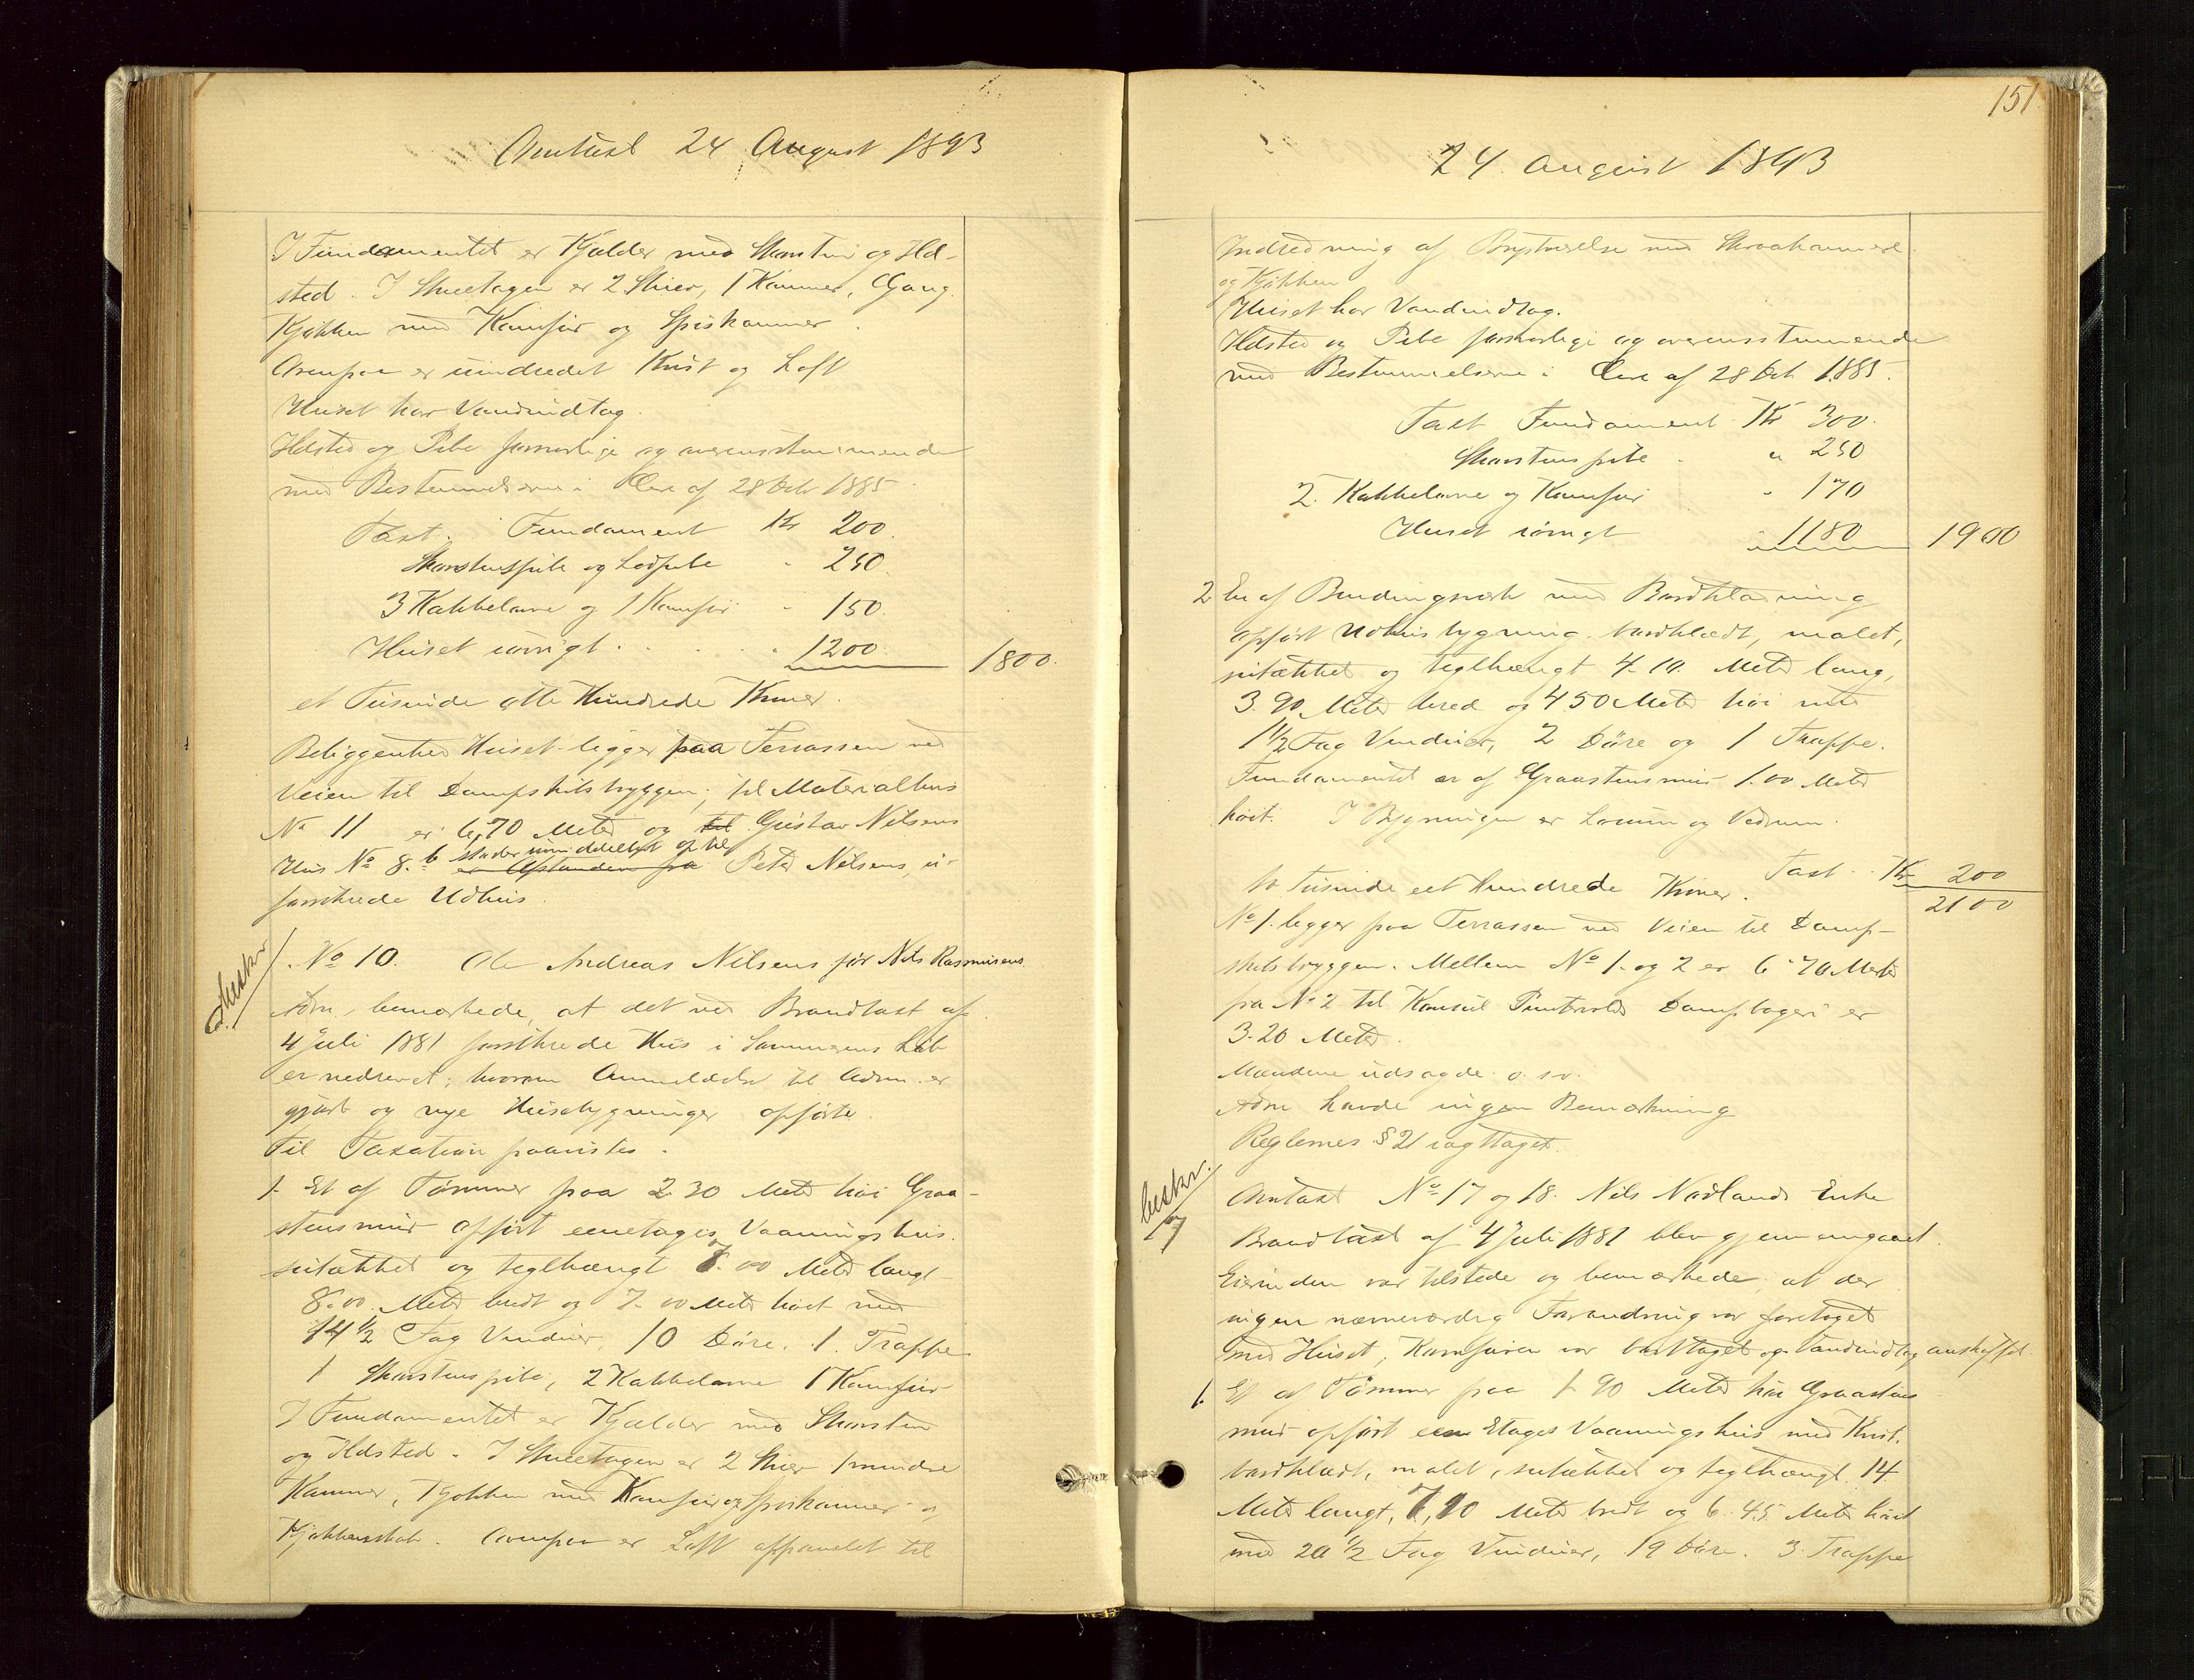 Omtaxt 24 August 1893
I Fundamentet er Kjælder med Skorsten og Ild-
sted. I Stueetagen er 2 Stuer, 1 Kammer, Gang
Kjøkken med Komfur og Spiskammer.
Ovenpaa er uindredet Kvist og Loft
Huset har Vandindtag.
Ildsted og Pibe forsvarlige og overensstemmende
med Bestemmelserne i Lov af 28 Oct 1885
Taxt. Fundament Kr 200.
Skorstenspibe og Lodpibe " 250.
3 Kakkelovne og 1 Komfur " 150.
Huset iøvrigt . . . . " 1200. 1800.
et Tusinde otte Hundrede Kroner.
Beliggenhed Huset ligger paa Terrassen ved
Veien til Dampskibsbryggen; til Materialhus
No 11 er 6,70 Meter og til Gustav Nilsens
Hus No 8. b støder umiddelbart op til
er Afstanden fra Peter Nilsens, u-
forsikrede Udhus.
beskr.
No 10. Ole Andreas Nilsens før Nils Rasmusens
Adm. bemærkede, at det ved Brandtaxt af
4 Juli 1881 forsikrede Hus i Sommerens Løb
er nedrevet; hvorom Anmeldelse til Adm. er
gjort og nye Husebygninger opførte.
Til Taxation paavistes.
1. Et af Tømmer paa 2.30 Meter høi Graa-
stensmur opført eenetages Vaaningshus.
sutækket og teglhængt 8.00 Meter langt
8.00. Meter bredt og 7.00 Meter høit med
14 1/2 Fag Vinduer, 10 Døre, 1. Trappe
1 Skorstenspibe, 2 Kakkelovne 1 Komfur
I Fundamentet er Kjælder med Skorsten
og Ildsted. I Stueetagen er 2 Stuer 1 mindre
Kammer, Kjøkken med Komfur og Spiskammer og
Kjøkkenskab. Ovenpaa er Loft afpanelet til
151
24 August 1893
Indredning af Kvistværelse med Skraakammer
og Kjøkken
Huset har Vandindtag.
Ildsted og Pibe forsvarlige og overensstemmende
med Bestemmelserne i Lov af 28 Oct 1885.
Taxt Fundament Kr 300.
Skorstenspibe " 250
2 Kakkelovne og Komfur " 170
Huset iøvrigt " 1180 1900
2 En af Bindingsværk med Bordklædning
opført Udhusbygning, bordklædt, malet,
sutækket og teglhængt 4.10. Meter lang,
3.90 Meter bred og 4 50 Meter høi med
1 1/2 Fag Vinduer, 2 Døre og 1 Trappe.
Fundamentet er af Graastensmur 1.00 Meter
høit. I Bygningen er Lokum og Vedrum.
Taxt. Kr 200
to Tusinde eet Hundrede Kroner. 2100
No 1. ligger paa Terrassen ved Veien til Damp-
skibsbryggen. Mellem No 1. og 2 er 6.70 Meter
fra No 2 til Konsul Puntervolds Dampbageri er
3.20 Meter.
Mændene udsagde o.s.v.
Adm havde ingen Bemærkning
Reglemes § 21 iagttaget.
beskr.
7
Omtaxt No 17 og 18. Nils Nødlands Enke
Brandtaxt af 4 Juli 1881 blev gjennemgaaet.
Eierinden var tilstede og bemærkede, at der
ingen nævneværdig Forandring var foretaget
med Huset, Komfuren var borttaget og Vandindtag anskaffet.
1. Et af Tømmer paa 1.90 Meter høi Graastens
mur opført een Etages Vaaningshus med Kvist.
bordklædt, malet, sutækket og teglhængt 14
Meter langt, 7,10 Meter bredt og 6.45 Meter høit
med 20 1/2 Fag Vinduer, 19 Døre. 3 Trappe